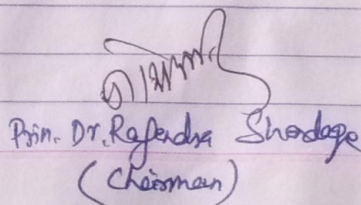 Prin. Dr. Rajendra Shendage
(Chairman)